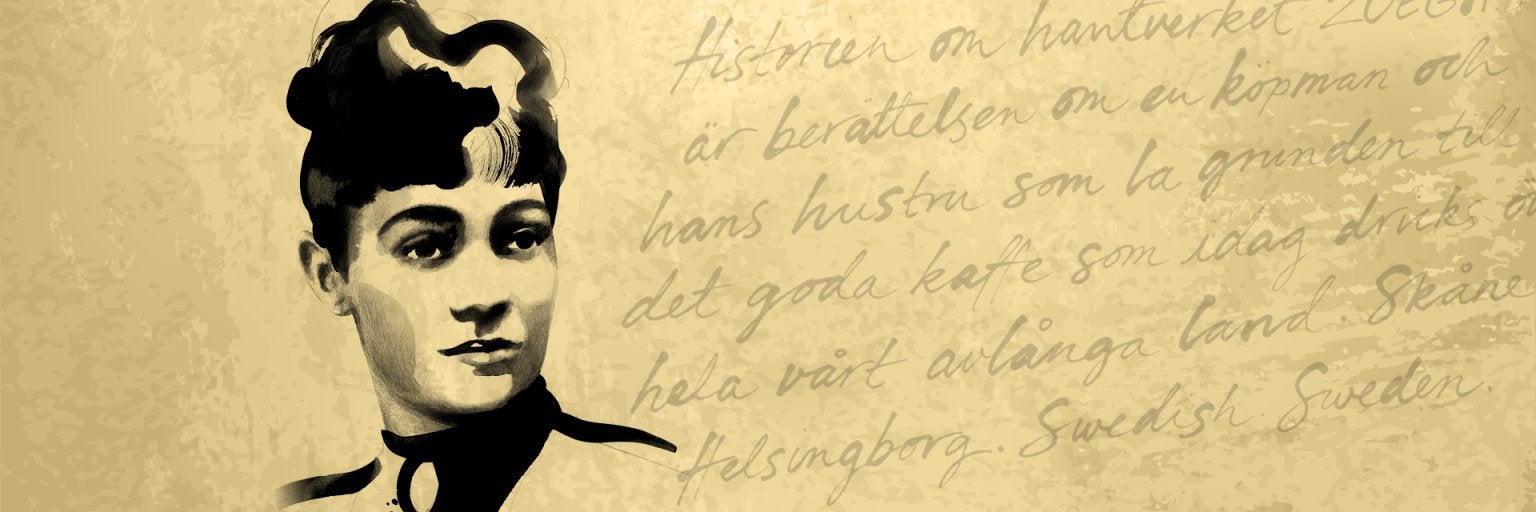 Historien om hantverket ZOÉGAS
är berättelsen om en köpman och
hans hustru som la grunden till
det goda kaffe som idag dricks
hela vårt avlånga land. Skåne
Helsingborg. Swedish. Sweden.